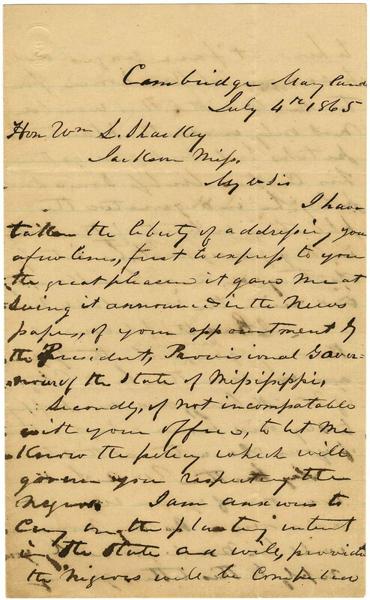 Cambridge Maryland
July 4th 1865
Hon Wm L. Sharkey
Jackson Miss.
My d Sir
I have
taken the liberty of addressing you
a few lines, first to express to you
the great pleasure it gave me at
seing it announced in the News
papers, of your appointment by
the President, Provisional Gover-
nor of the State of Missippi,
Secondly, if not incompatable
with your office, to let me
Know the policy which will
govern you respecting the
Negros I am anxious to
Cary on the planting intrest
in the State and will, provided
the Negros will be Compelled